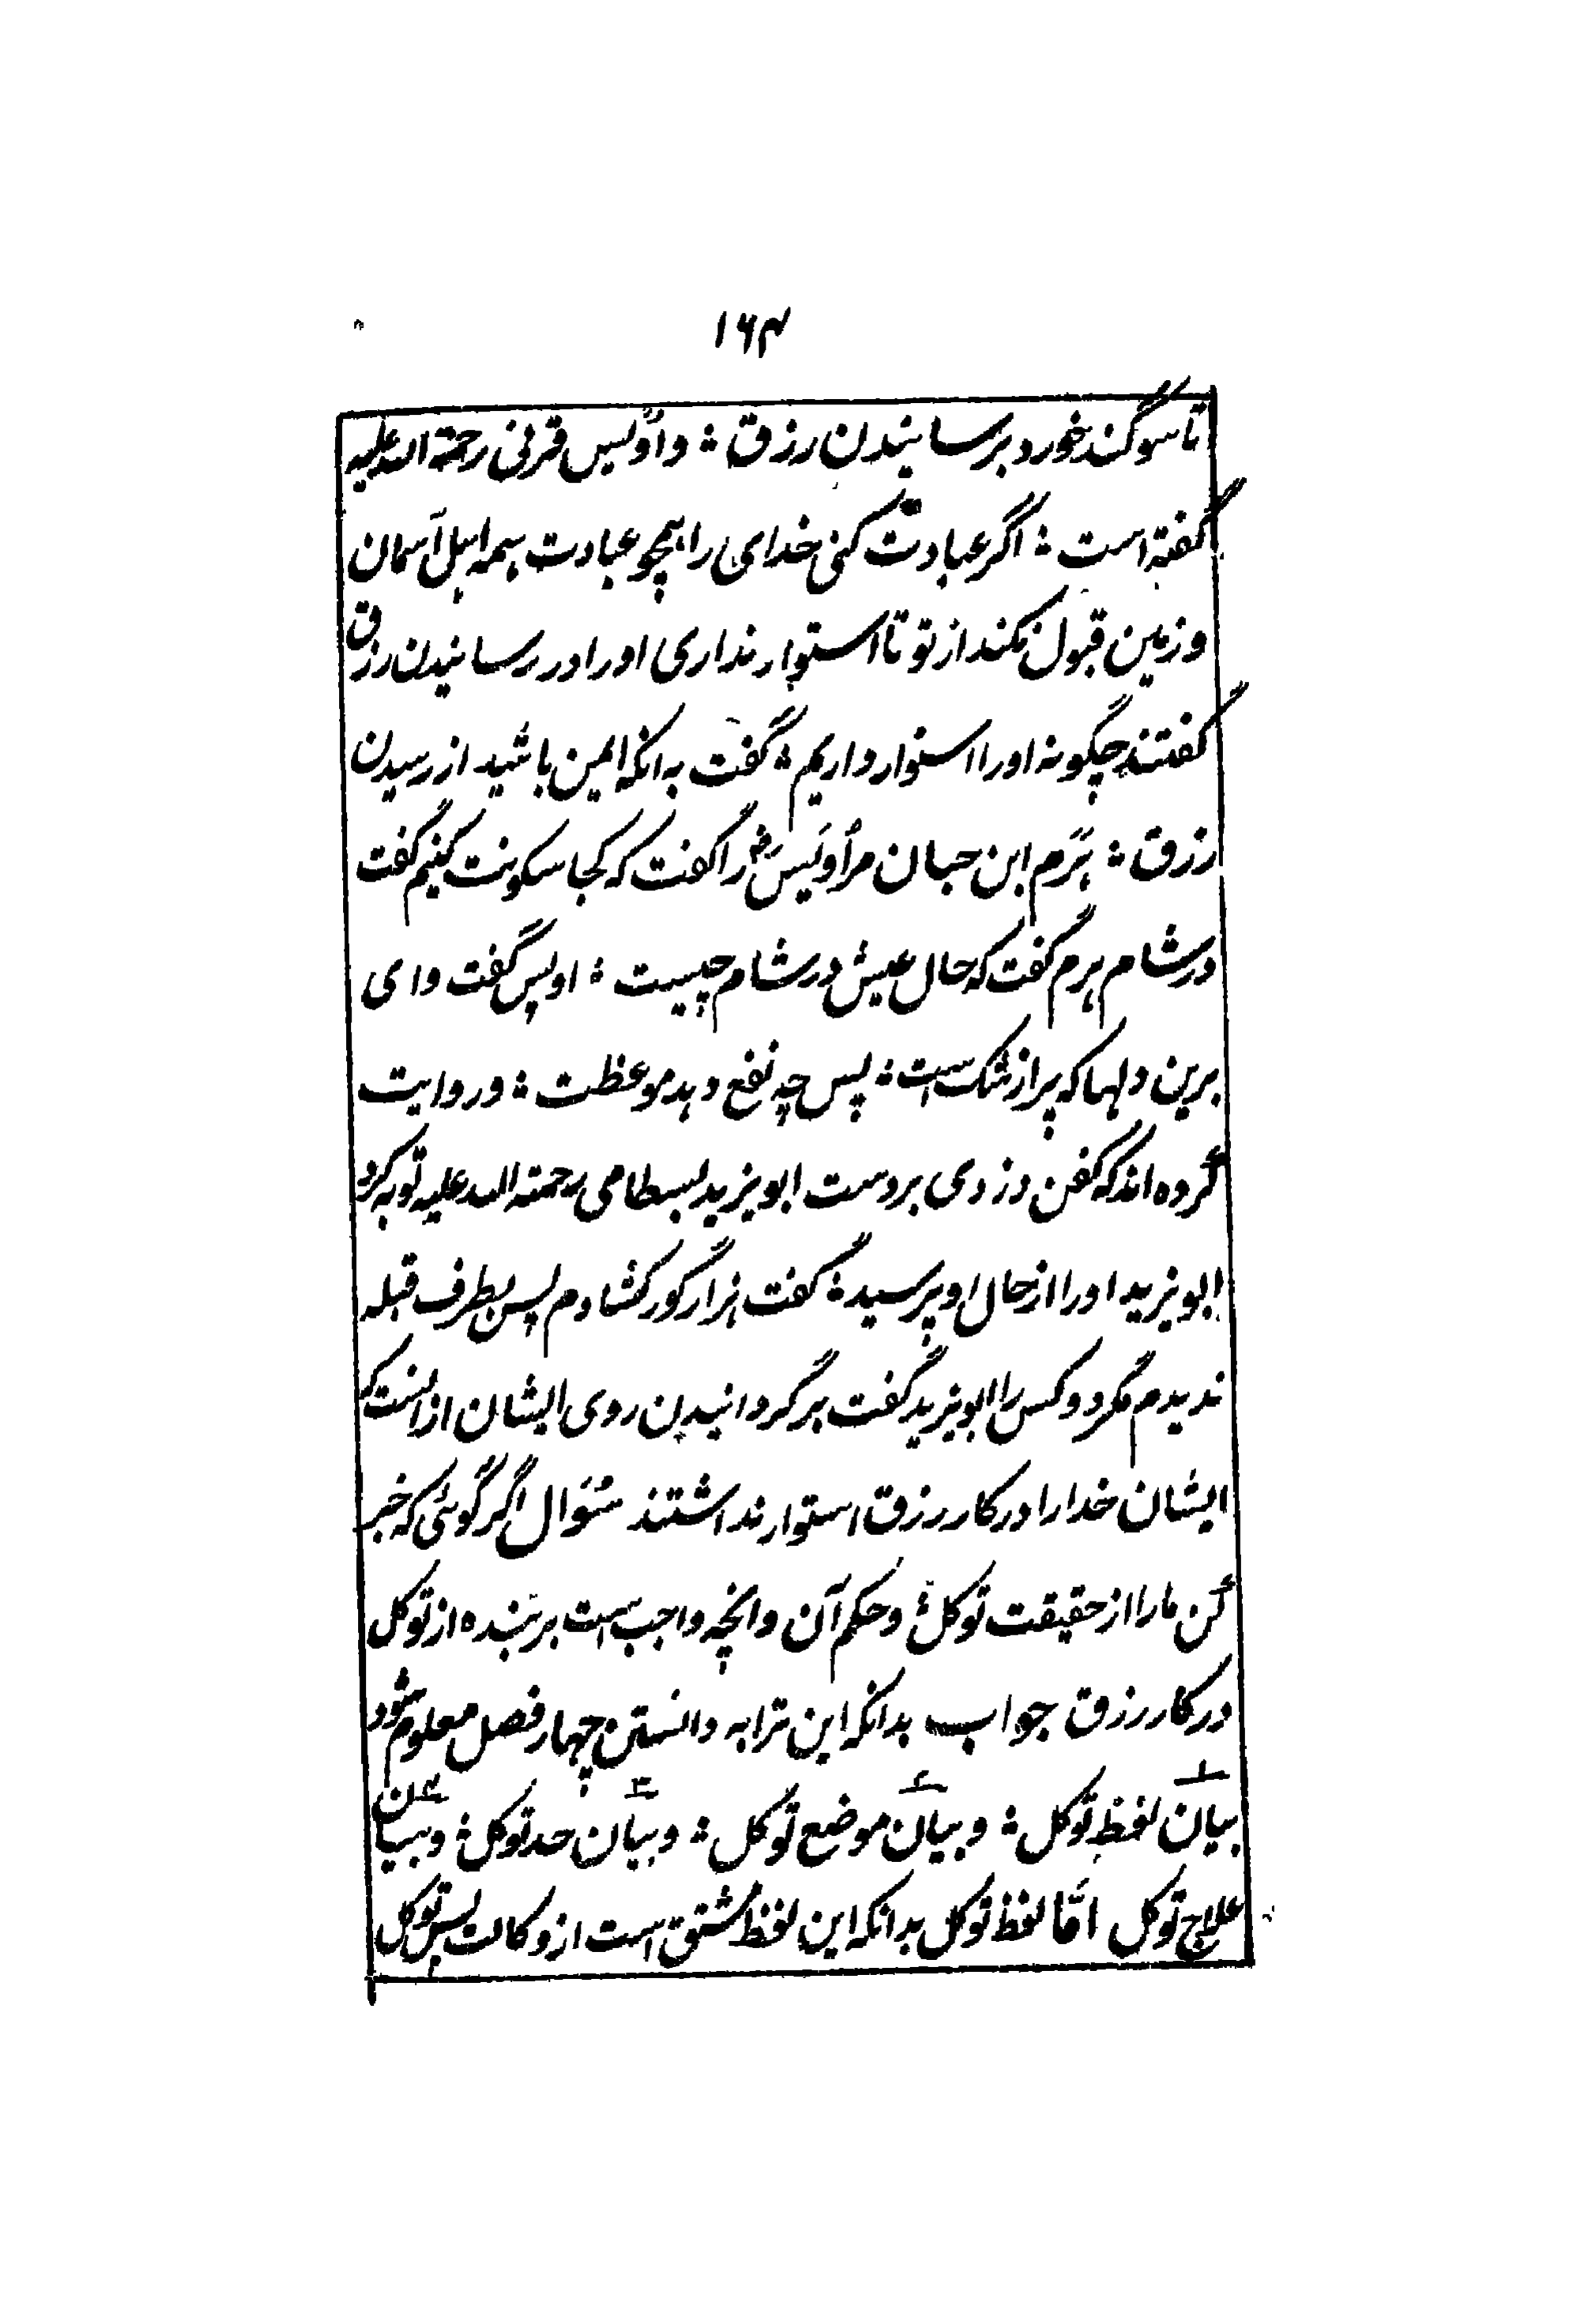 ۱۶۴
تا سوگند خورد برسانیدن رزق ؛ و اُوَیس قرنی رحمة الله علیه
گفته است ؛ اگر عبادت کنی خدای را همچو عبادت همه اهل آسمان
و زمین قبول نکند از تو تا استوار نداری او را در رسانیدن رزق
گفتند چگونه او را استوار داریم ؛ گفت به انکه ایمن باشید از رسیدن
رزق ؛ هَرَم ابن حبان مر اُوَیس رض را گفت که کجا سکونت کنیم گفت
در شام هرم گفت که حال عیش در شام چیست ؛ اویس گفت وای
برین دلها که پر از شک است ؛ پس چه نفع دهد موعظت ؛ و روایت
کرده اند که کفن دزدی بر دست ابو یزید بسطامی رحمته الله علیه توبه کرد
ابو یزید او را از حال او پرسید ؛ گفت هزار گور کشادم پس بطرف قبله
ندیدم مگر دو کس را ابو یزید گفت برگردانیدن روی ایشان ازانست که
ایشان خدا را در کار رزق استوار نداشتند سُؤال اگر گوئی که خبر
کُن ما را از حقیقت توکل ؛ و حکم آن و انچه واجب است بر بنده از توکل
در کار رزق جواب بدانکه این ترا به دانستن چهار فصل معلوم شود
بیان ۱ لفظ توکل ؛ و بیان ۲ موضع توکل ؛ و بیان ۳ حد توکل ؛ و بیان ۴
علاج توکل امّا لفظ توکل بدانکه این لفظ مُشتق است از وکالت پس توکل